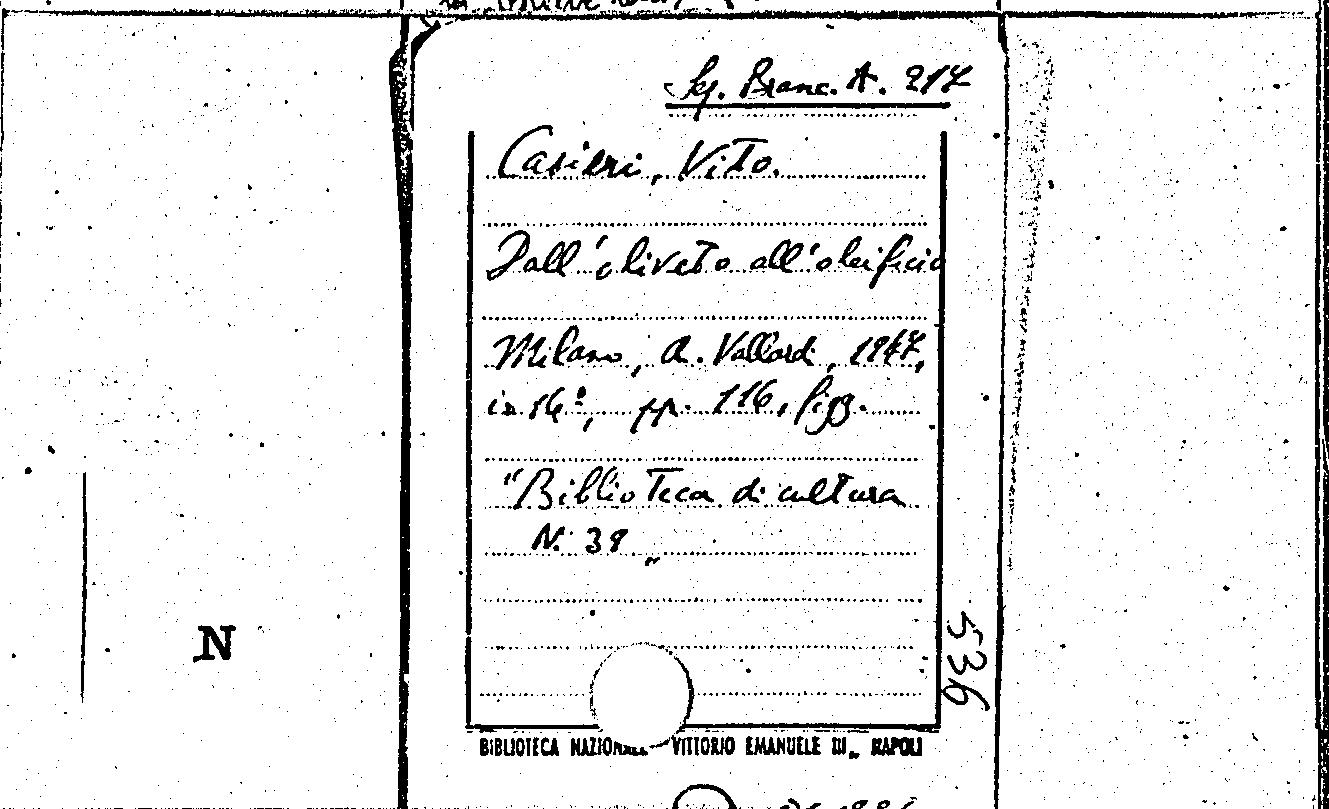 Casieri, Vito.
Dall'oliveto all'oleificio
Milano, A. Vallardi, 1947,
in 16º, pp. 116, figg.
"Biblioteca di cultura
N. 38 "
536
N
BIBLIOTECA NAZIONALE "VITTORIO EMANUELE III" NAPOLI